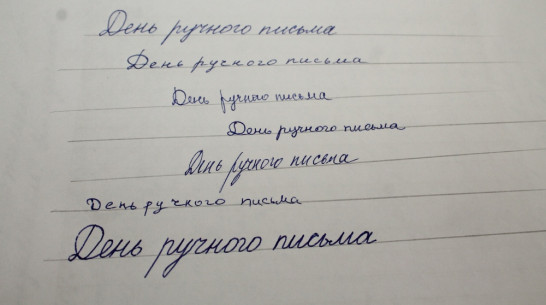 День ручного письма
День русного письма
День ручного письма
День ручного письма
День ручного письма
День ручного письма
День ручного письма